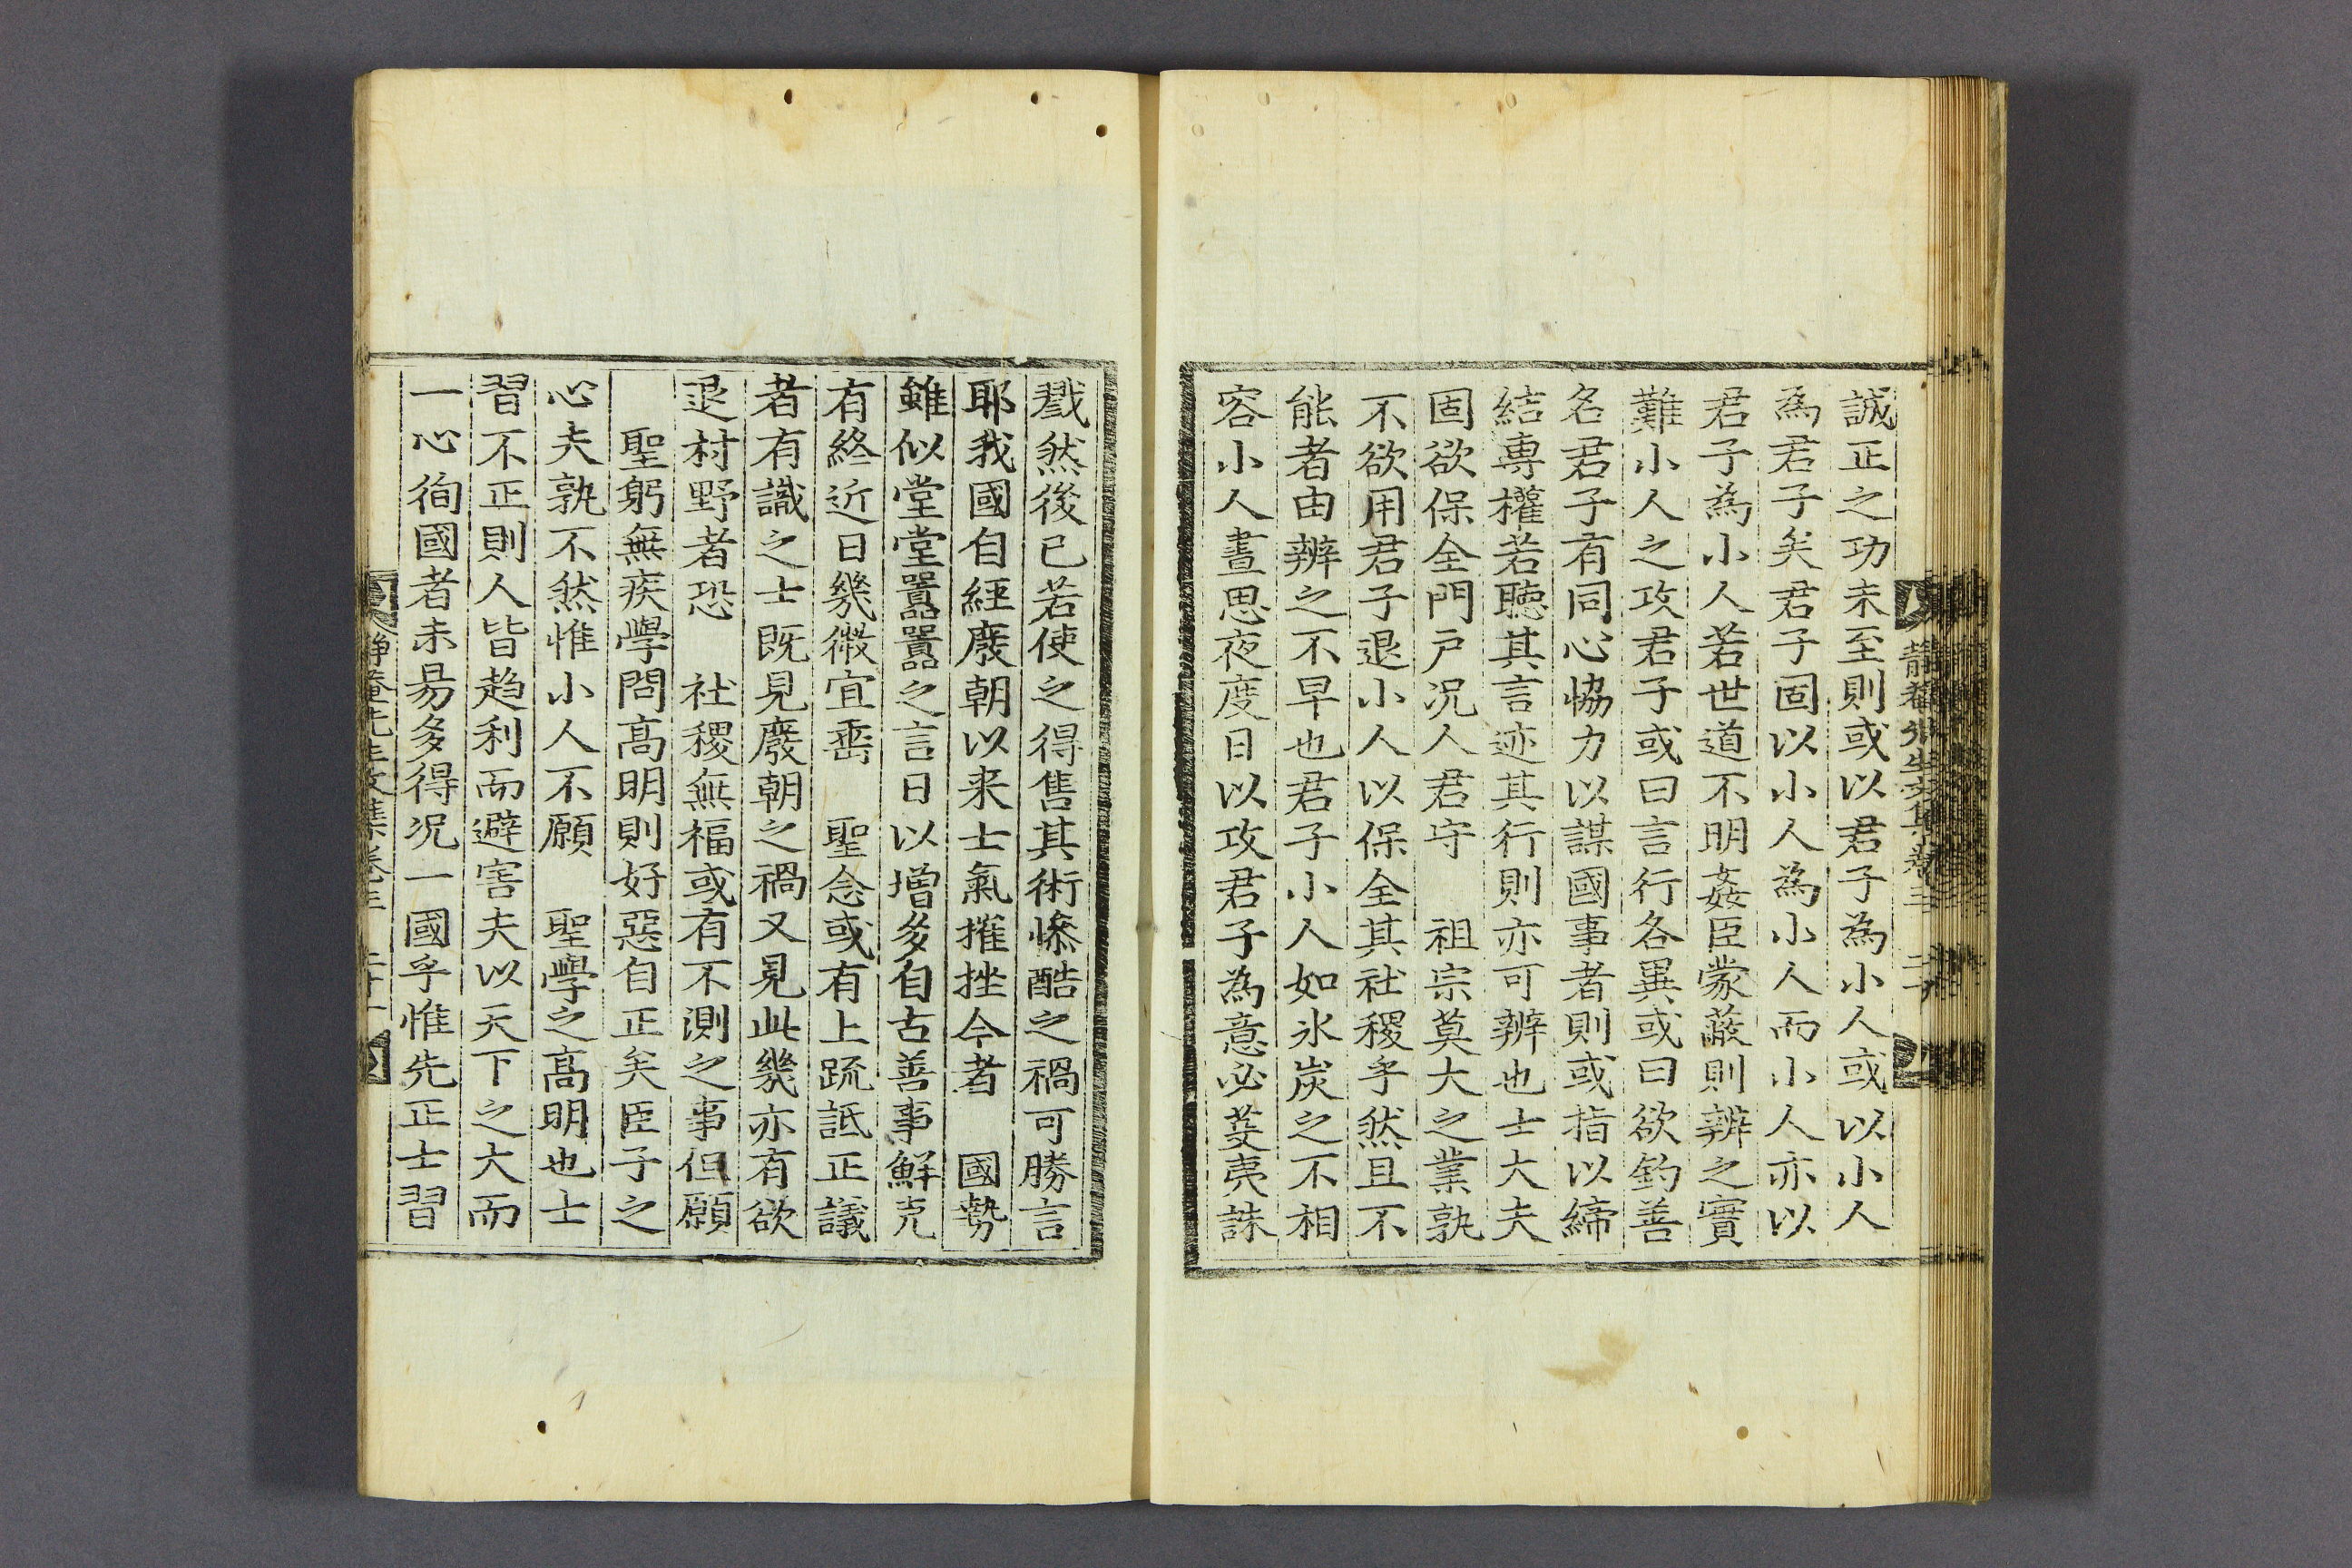 誠正之功未至則或以君子為小人或以小人
為君子矣君子固以小人為小人而小人亦以
君子為小人若世道不明姦臣蒙蔽則辨之實
難小人之攻君子或曰言行各異或曰欲釣善
名君子有同心恊力以謀國事者則或指以締
結專權若聽其言迹其行則亦可辨也士大夫
固欲保全門戶况人君守 祖宗莫大之業孰
不欲用君子退小人以保全其社稷乎然且不
能者由辨之不早也君子小人如氷炭之不相
容小人晝思夜度日以攻君子為意必芟夷誅
戮然後已若使之得售其術慘酷之禍可勝言
耶我國自經廢朝以来士氣摧挫今者 國勢
雖似堂堂囂囂之言日以增多自古善事鮮克
有終近日幾微宜畱 聖念或有上疏詆正議
者有識之士既見廢朝之禍又見此幾亦有欲
退村野者恐 社稷無福或有不測之事但願
聖躬無疾學問高明則好惡自正矣臣子之
心夫孰不然惟小人不願 聖學之高明也士
習不正則人皆趋利而避害夫以天下之大而
一心徇國者未易多得况一國乎惟先正士習
靜菴先生文集卷三 二十
靜菴先生文集卷三 二十一